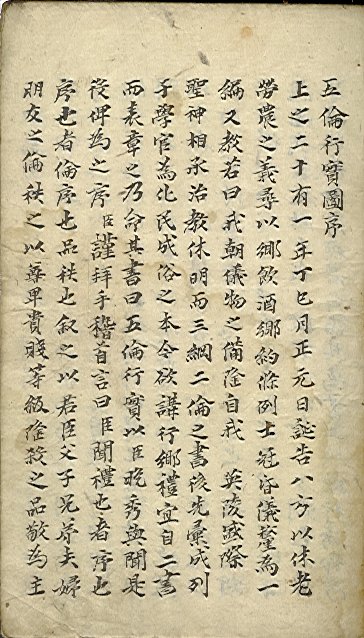 五倫行實圖序
上之二十有一年丁巳月正元日誕告八方以休老
勞農之義尋以鄉飮酒鄉約條列士冠昏儀釐爲一
編又教若曰我朝儀物之備隆自我 英陵盛際
聖神相承治教休明而三綱二倫之書後先彙成列
于學官爲化民成俗之本今欲講行鄉禮宜自二書
而表章之乃命其書曰五倫行實以臣晩秀與聞是
役俾爲之序臣謹拜手稽首言曰臣聞禮也者序也
序也者倫序也品秩也叙之以若臣父子兄弟夫婦
朋友之倫秩之以尊卑貴賤等級隆殺之品敬爲主